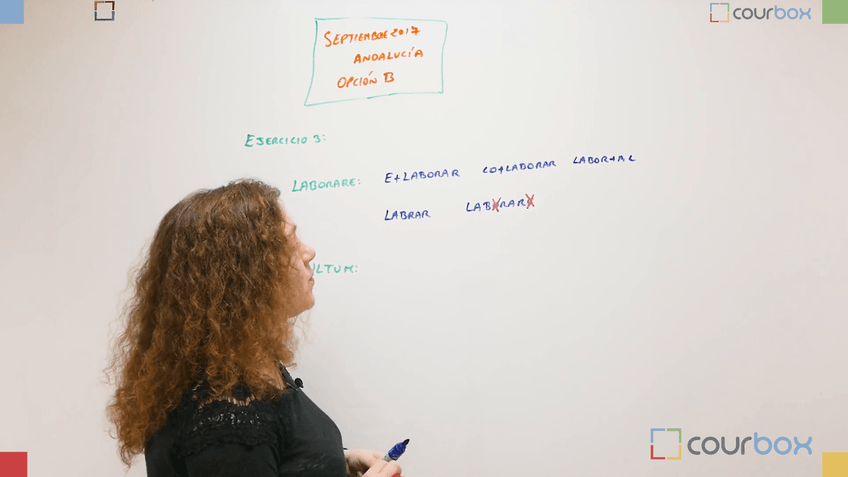 courbox
SEPTIEMBRE 2017
ANDALUCÍA
OPCIÓN B
EJERCICIO 3:
LABORARE: E+LABORAR CO+LABORAR LABOR+AL
LABRAR LABORARE
ULTUM:
courbox